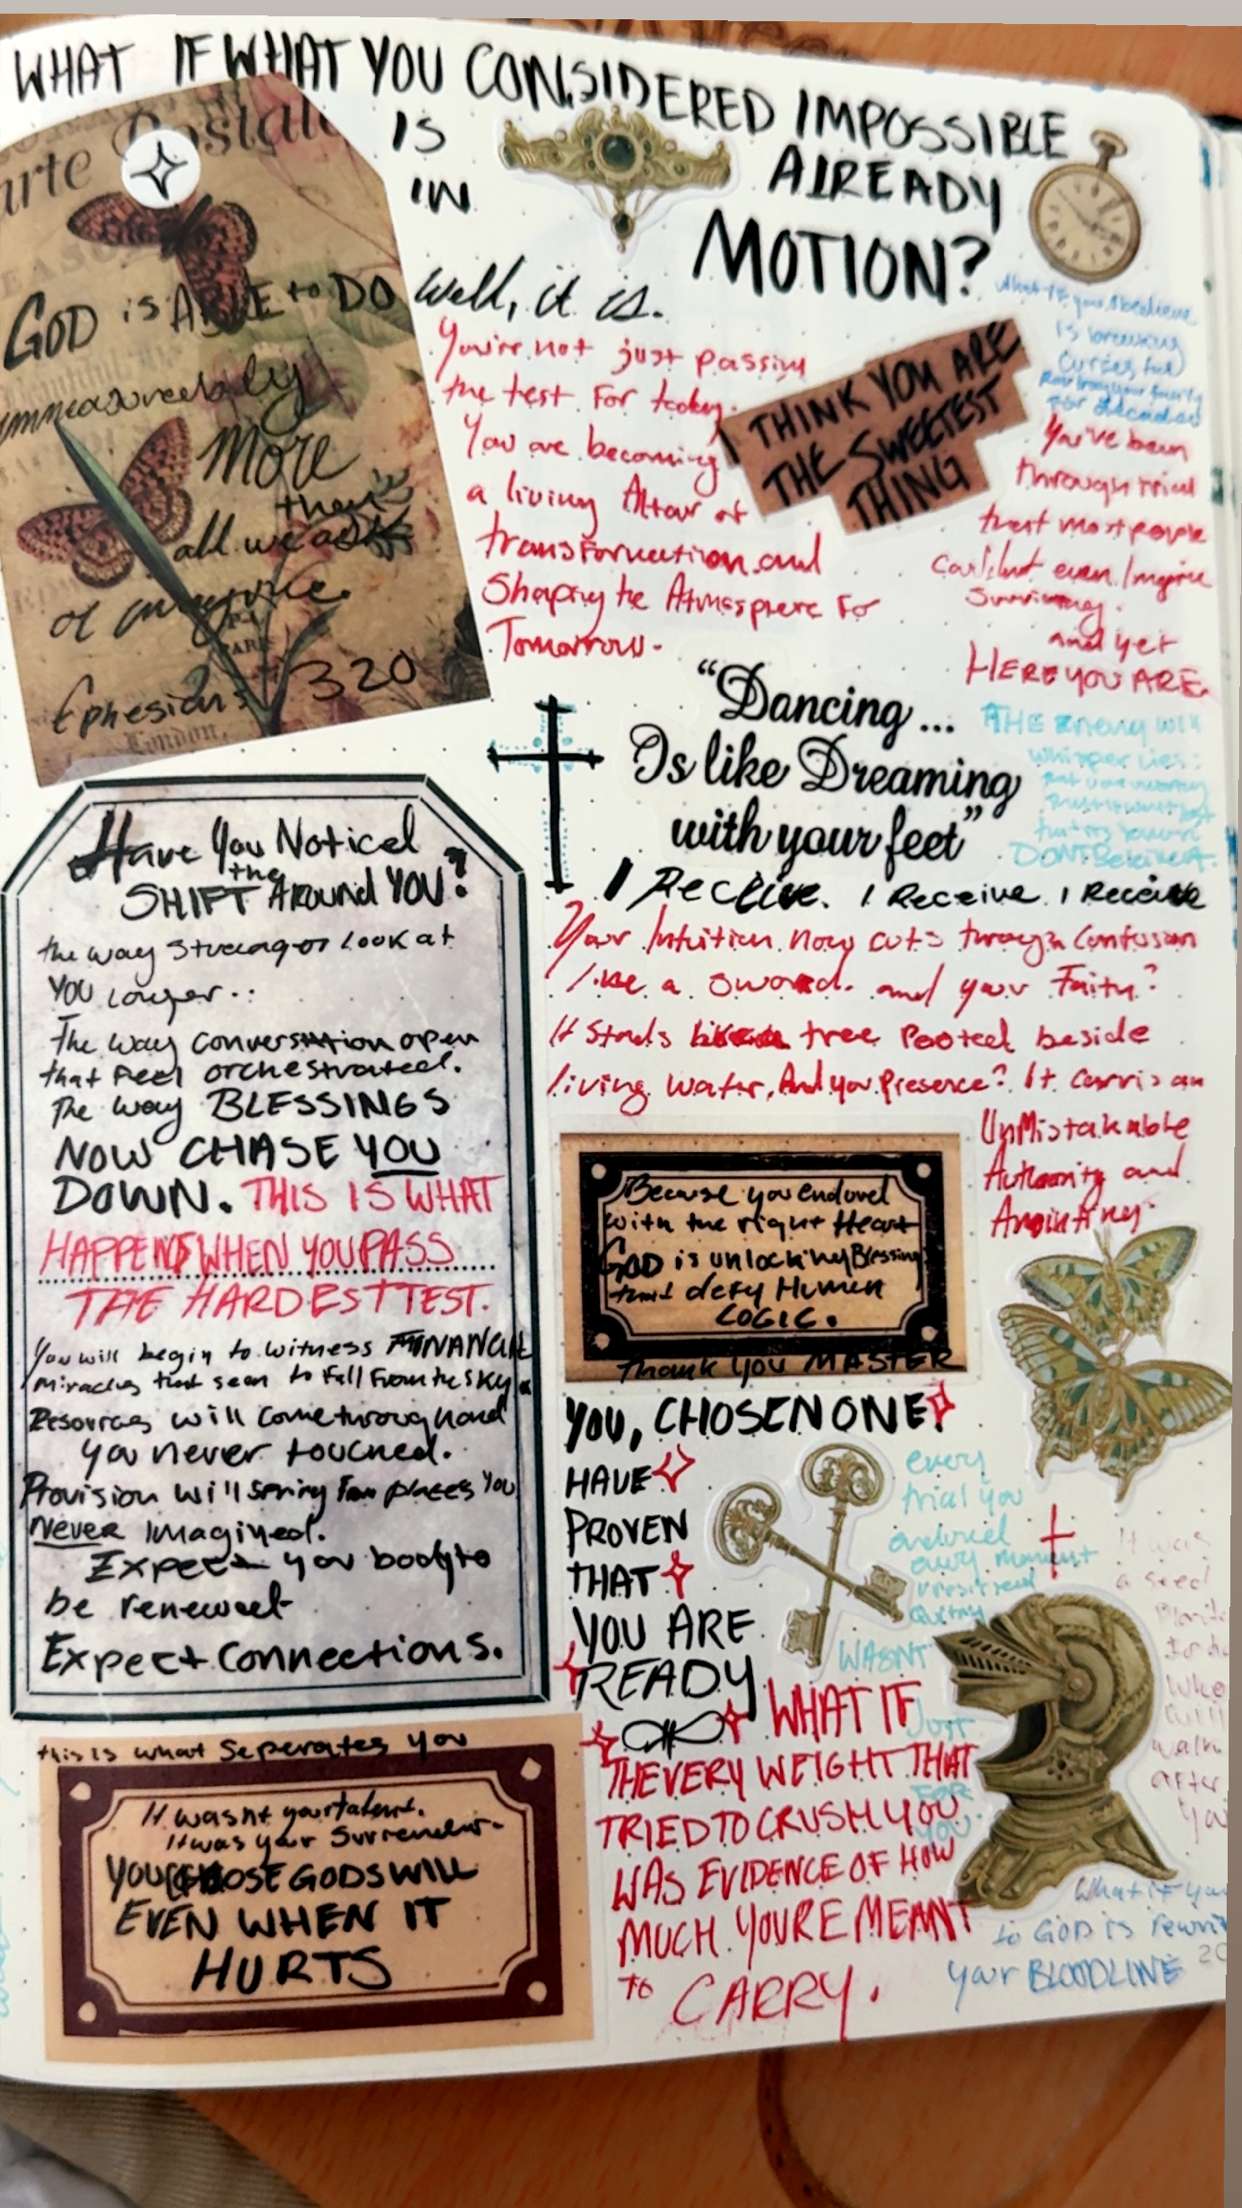 WHAT IF WHAT YOU CONSIDERED IMPOSSIBLE
IS ALREADY
IN MOTION?
Carte Postale
GOD is ABLE to DO
immeasureably
More
then
all we ask
or imagine.
Ephesians 320
London,
Well, it is.
You're not just passing
the test for today.
You are becoming
a living Altar of
transformation and
Shaping the Atmosphere For
Tomorrow.
I THINK YOU ARE
THE SWEETEST
THING
What if your obedience
is breaking
curses that
for decades
You've been
through trial
that most people
couldn't even Imagine
Surviving.
and yet
HERE YOU ARE.
"Dancing...
Is like Dreaming
with your feet"
THE Enemy will
whisper lies:
DONT Believe it.
I Receive. I Receive. I Receive
Your Intuition now cuts through Confusion
like a sword. and your Faith?
It stands like a tree Rooted beside
living water, And you presence? It carris an
UnMistakable
Authority and
Anointing.
Have You Noticed
the
SHIFT Around YOU?
the way strangers Look at
YOU Longer..
The way conversation open
that feel orchestrated.
The way BLESSINGS
NOW CHASE YOU
DOWN. THIS IS WHAT
HAPPENS WHEN YOU PASS
THE HARDEST TEST.
You will begin to witness FINANCIAL
miracles that seem to fall From the sky.
Resources will come through hand
you never touched.
Provision will spring from places you
never Imagined.
Expect you body to
be renewed
Expect Connections.
this is what Seperates you
It wasn't your talent.
It was your Surrender.
YOU CHOSE GODS WILL
EVEN WHEN IT
HURTS
Because you endured
with the right Heart
GOD is unlocking Blessing
that defy Human
LOGIC.
Thank you MASTER
YOU, CHOSEN ONE
HAVE
PROVEN
THAT
YOU ARE
READY
every
trial you
endured
every moment
WASNT
Just
FOR
YOU
It was
a seed
WHAT IF
THE VERY WEIGHT THAT
TRIED TO CRUSH YOU
WAS EVIDENCE OF HOW
MUCH YOURE MEANT
to CARRY.
walk
after
What if you
to GOD is
your BLOODLINE